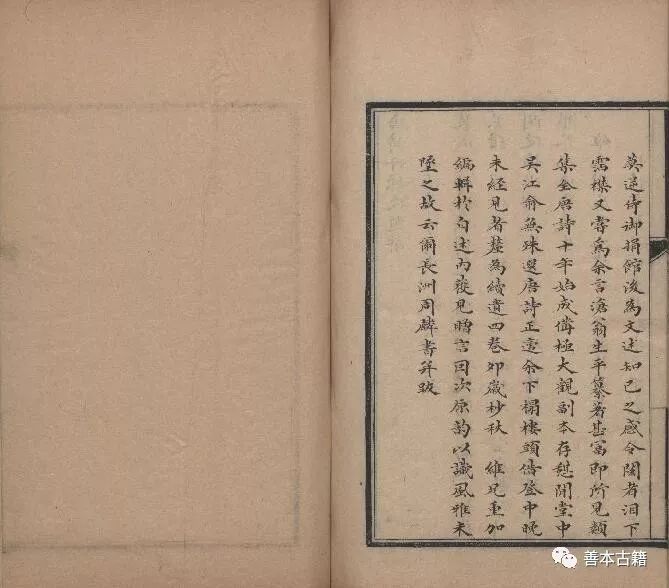 莫逆侍御捐館後為文述知已之感令閱者泪下
雲襟又嘗為余言滄翁生平纂著甚富即所見類
集全唐詩十年始成僃極大觀副本存憇閒堂中
吴江俞無殊選唐詩正變余下榻樓頭偕登中晚
未經見者釐為續遺四卷卯歲杪秋 維兄重加
編輯於自述内獲見贈言因次原韵以識風雅未
墜之故云爾長洲周麟書并跋
善本古籍